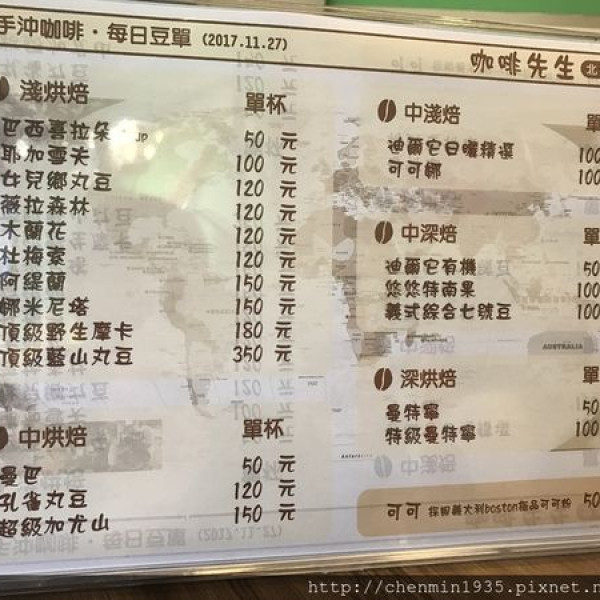 手沖咖啡・每日豆單 (2017.11.27)
咖啡先生 北
淺烘焙 單杯
巴西喜拉朵 JP 50 元
耶加雪夫 100 元
女兒鄉丸豆 120 元
薇拉森林 120 元
木蘭花 120 元
杜梅索 120 元
阿緹蘭 150 元
娜米尼塔 150 元
頂級野生摩卡 180 元
頂級藍山丸豆 350 元
中烘焙 單杯
曼巴 50 元
孔雀丸豆 120 元
超級加尤山 150 元
中淺焙 單
迪爾它日曬精選 100
可可娜 100
中深焙 單
迪爾它有機 50
悠悠特南果 100
義式綜合七號豆 100
AUSTRALIA
深烘焙 單
曼特寧 50
特級曼特寧 100
可可 採用義大利boston極品可可粉 50
http://chenmin1935.pixnet.n